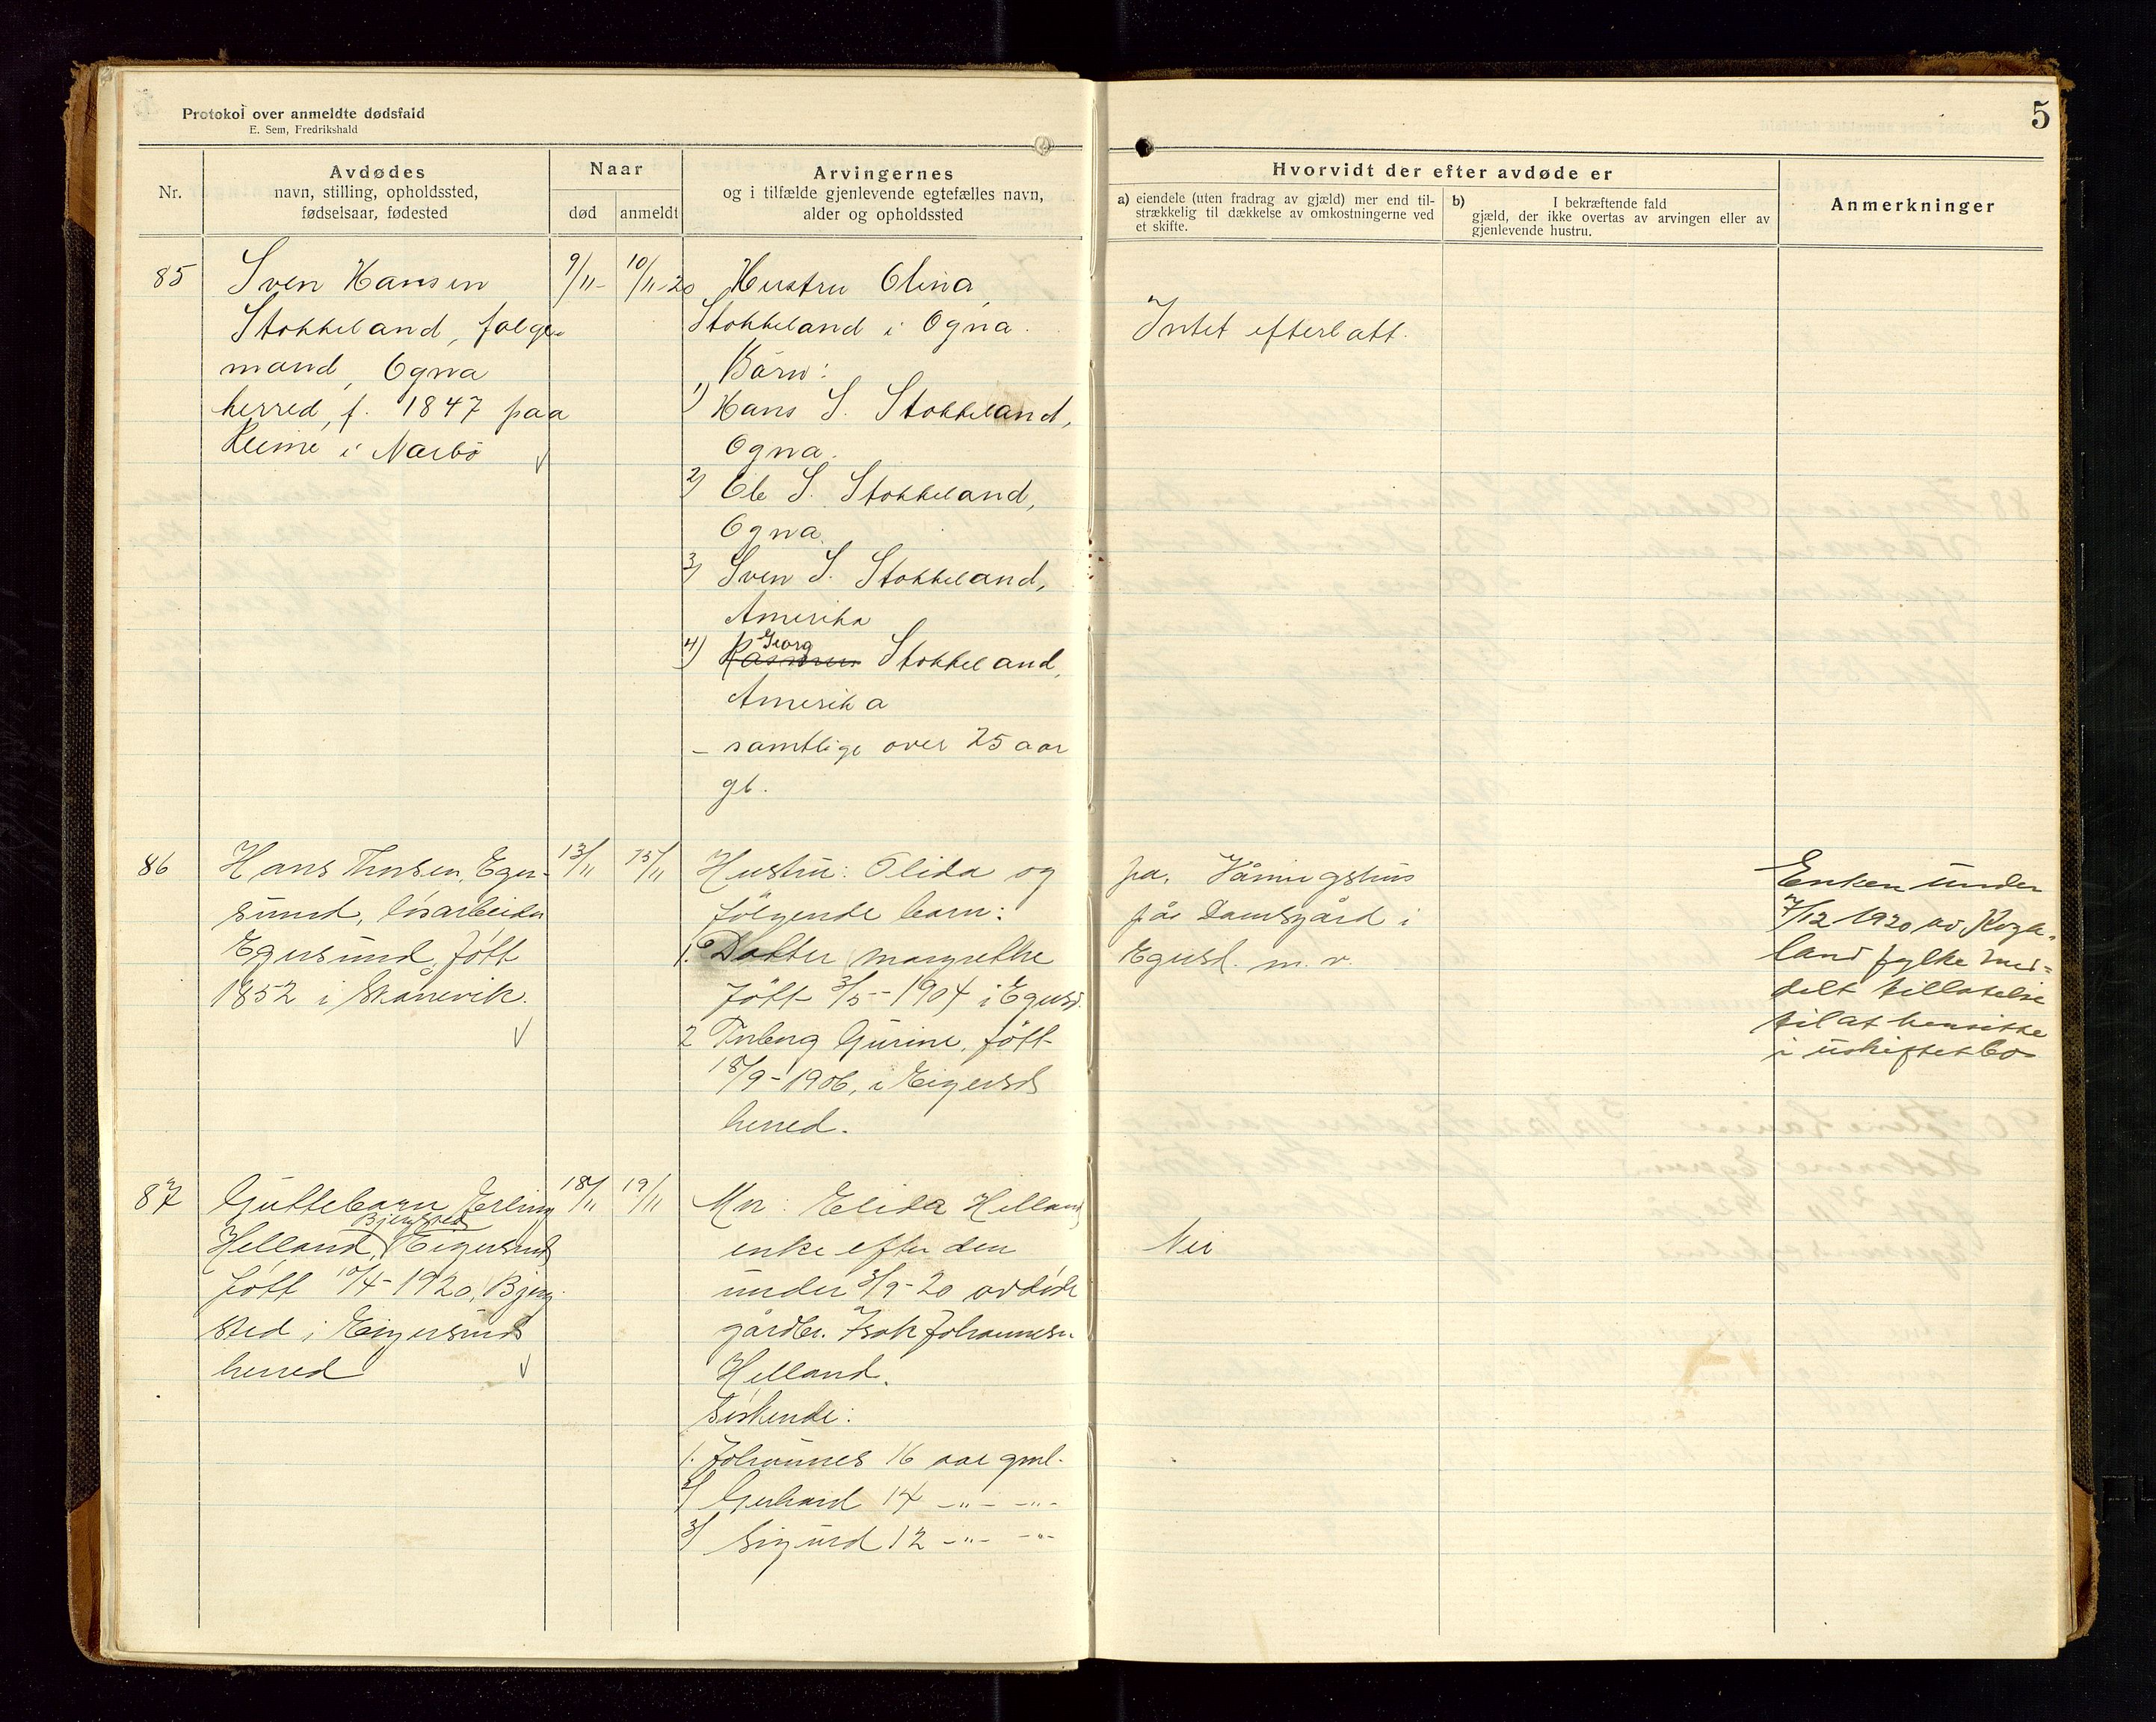 Protokol over anmeldte dødsfald
E. Sem, Fredrikshald
5
Nr.
Avdødes
navn, stilling, opholdssted,
fødselsaar, fødested
Naar
død
anmeldt
Arvingernes
og i tilfælde gjenlevende egtefælles navn,
alder og opholdssted
Hvorvidt der efter avdøde er
a) eiendele (uten fradrag av gjæld) mer end til-
strækkelig til dækkelse av omkostningerne ved
et skifte.
b) I bekræftende fald
gjæld, der ikke overtas av arvingen eller av
gjenlevende hustru.
Anmerkninger
85
Sven Hansen
Stokkeland, folge-
mand, Ogna
herred, f. 1847 paa
Reime i Nærbö
9/11-
10/11-20
Hustru Olina,
Stokkeland i Ogna.
Börn:
1) Hans S. Stokkeland,
Ogna.
2) Ole S. Stokkeland,
Ogna.
3) Sven S. Stokkeland,
Amerika
Georg
4) Rasmus Stokkeland,
Amerika
- samtlige over 25 aar
gl.
Intet efterlatt.
86
Hans Thorsen, Eger-
sund, lösarbeider
Egersund, fött
1852 i Skånevik.
13/11
15/11
Hustru: Olida og
fölgende barn:
1. Datter Margrethe
fött 3/5-1904 i Egersd.
2 Torborg Gurine, fött
18/9-1906, i Eigersds
herred.
pa. Våningshus
på Damsgård i
Egersd. m. v.
Enken under
7/12 1920 av Roga-
land fylke med-
delt tillatelse
til at hensitte
i uskiftet bo
87
Guttebarn Erling
Bjergsted
Helland, Eigersund
fött 10/4-1920, Bjerg-
sted i Eigersunds
herred
18/11
19/11
Mor: Elida Helland
enke efter den
under 3/9-20 avdöde
gårdbr. Isak Johannesen
Helland.
Söskende:
1. Johannes 16 aar gml.
2/ Gerhard 14 -"- -"-
3/ Sigurd 12 -"- -"-
Nei